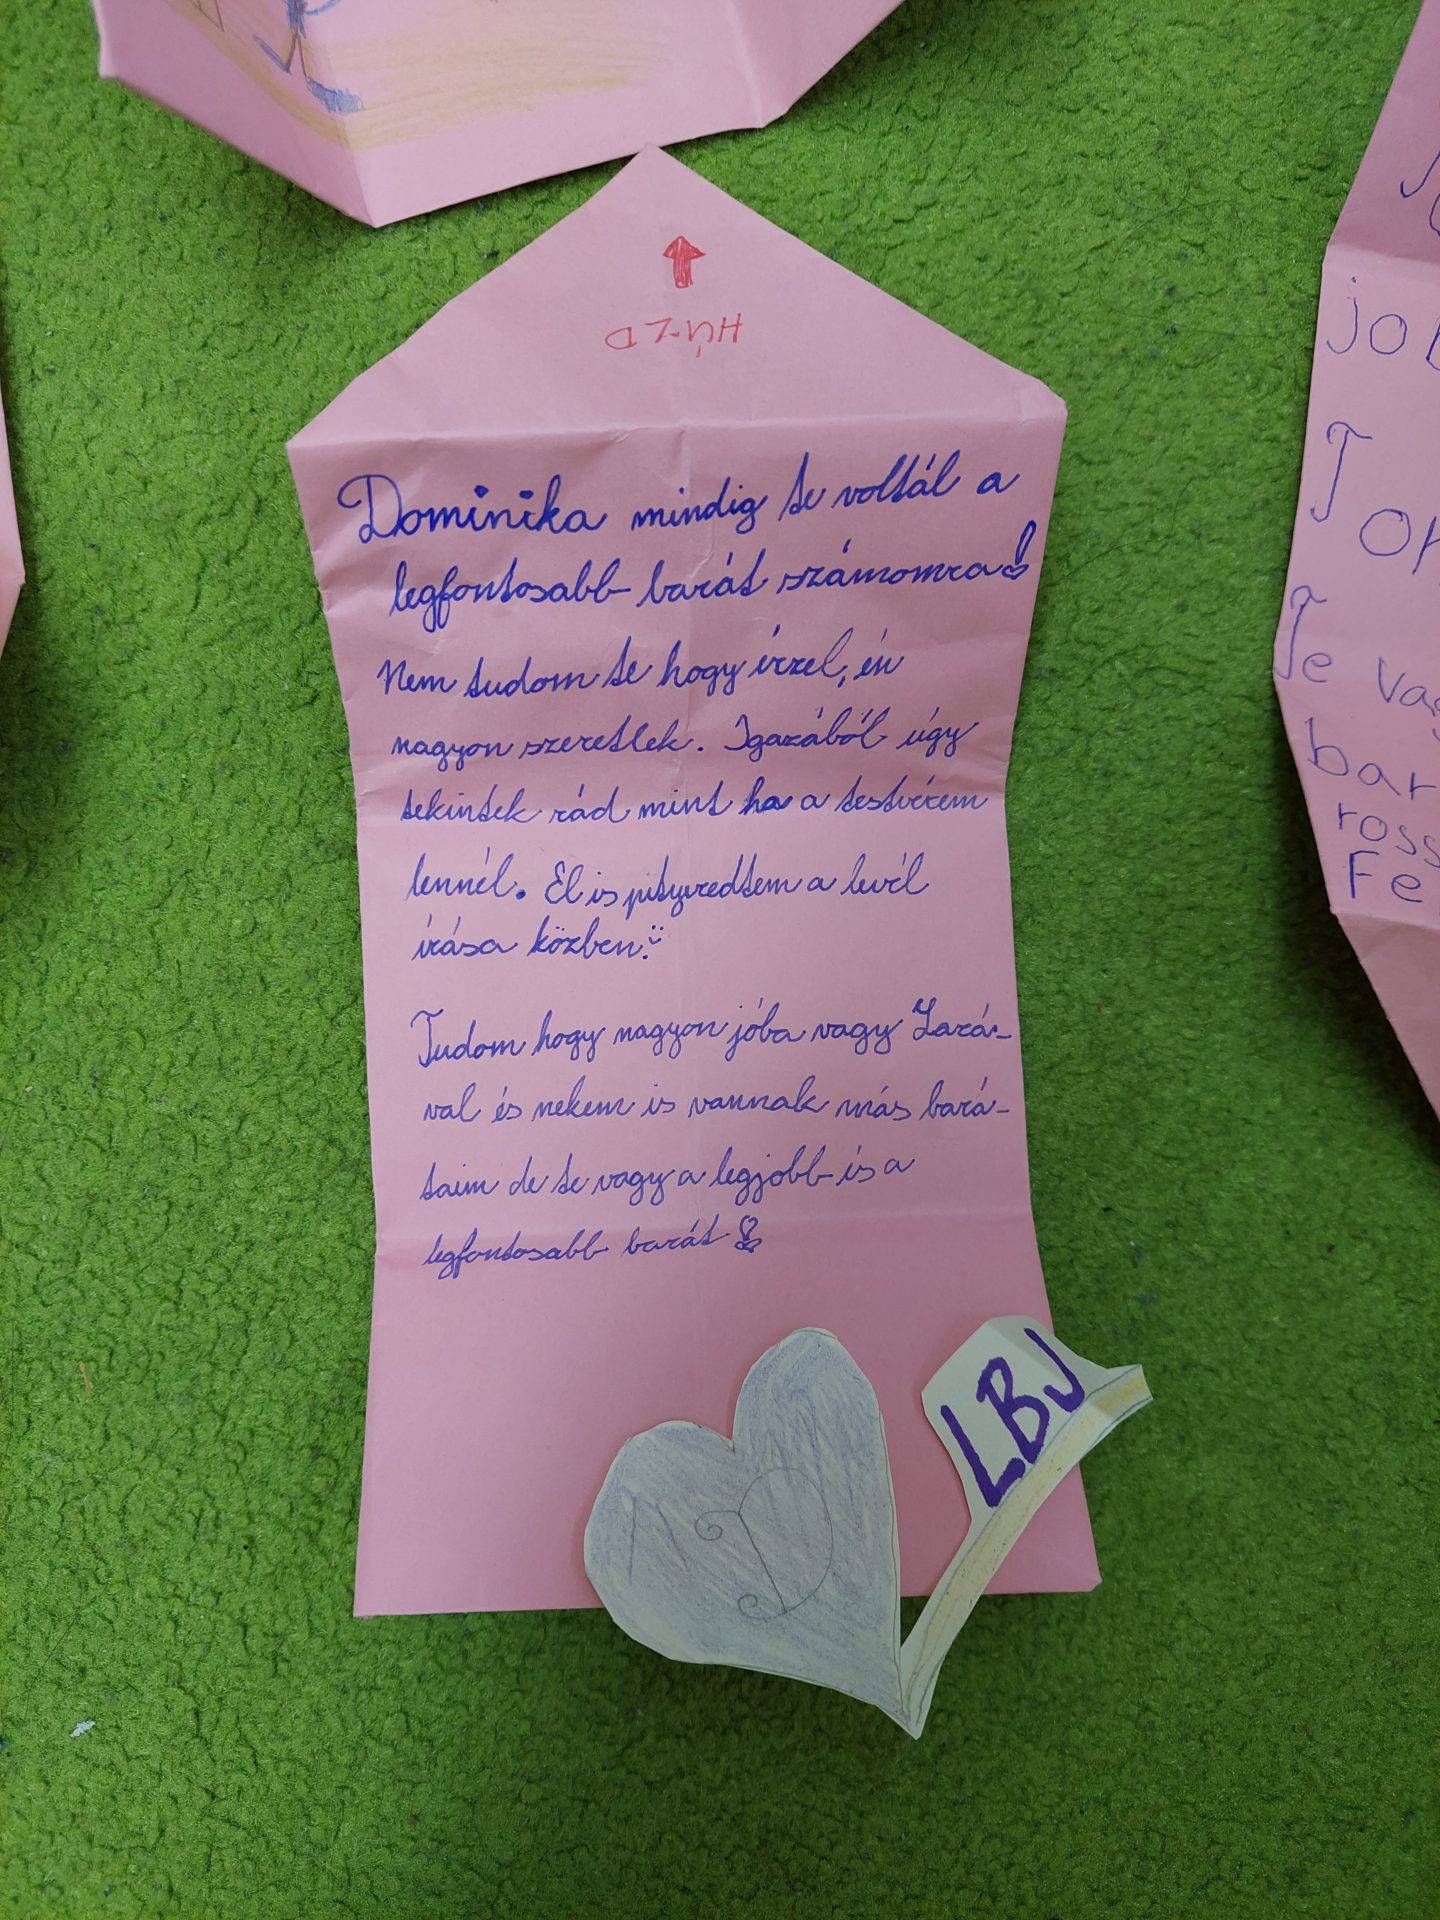 HÚZD
Dominika mindig te voltál a
legfontosabb barát számomra!
Nem tudom te hogy érzel, én
nagyon szeretlek. Igazából úgy
tekintek rád mint ha a testvérem
lennél. El is pityeredtem a levél
írása közben.
Tudom hogy nagyon jóba vagy Lará-
val és nekem is vannak más bará-
taim de te vagy a legjobb és a
legfontosabb barát!
LBJ
D
Te